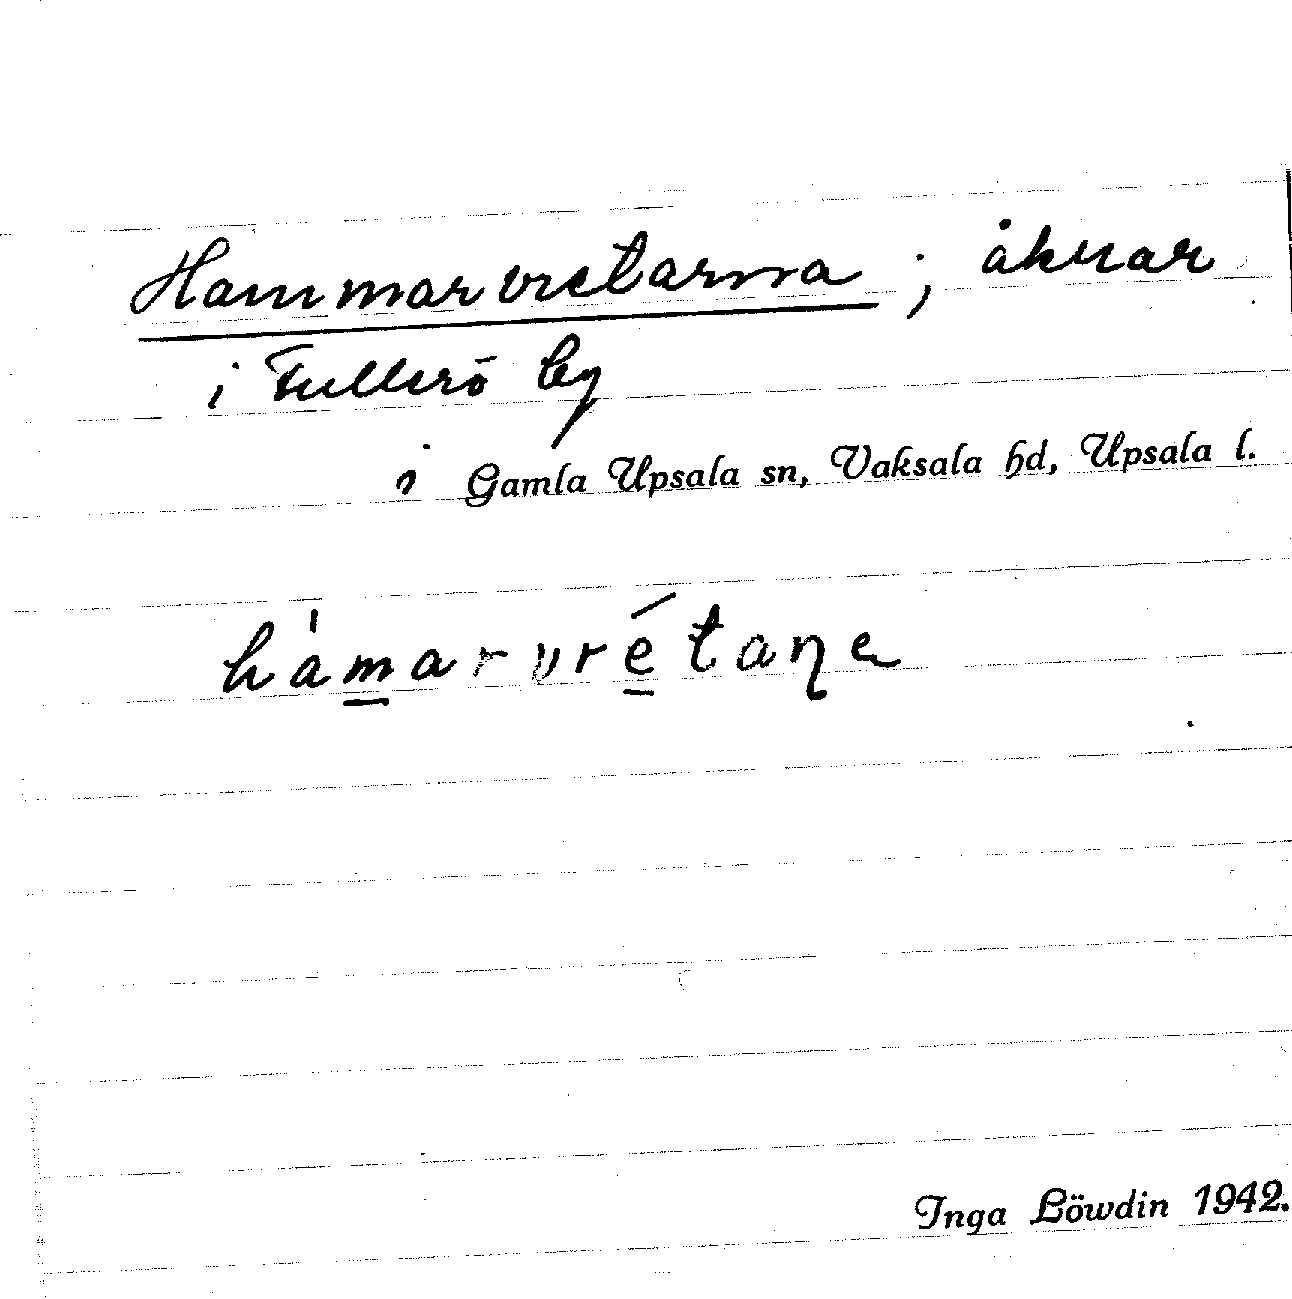 Hammarvretarna ; åkrar
i Fullerö by
i Gamla Upsala sn, Vaksala hd, Upsala l.
hàma̱rvré̱taṇa
Inga Löwdin 1942.